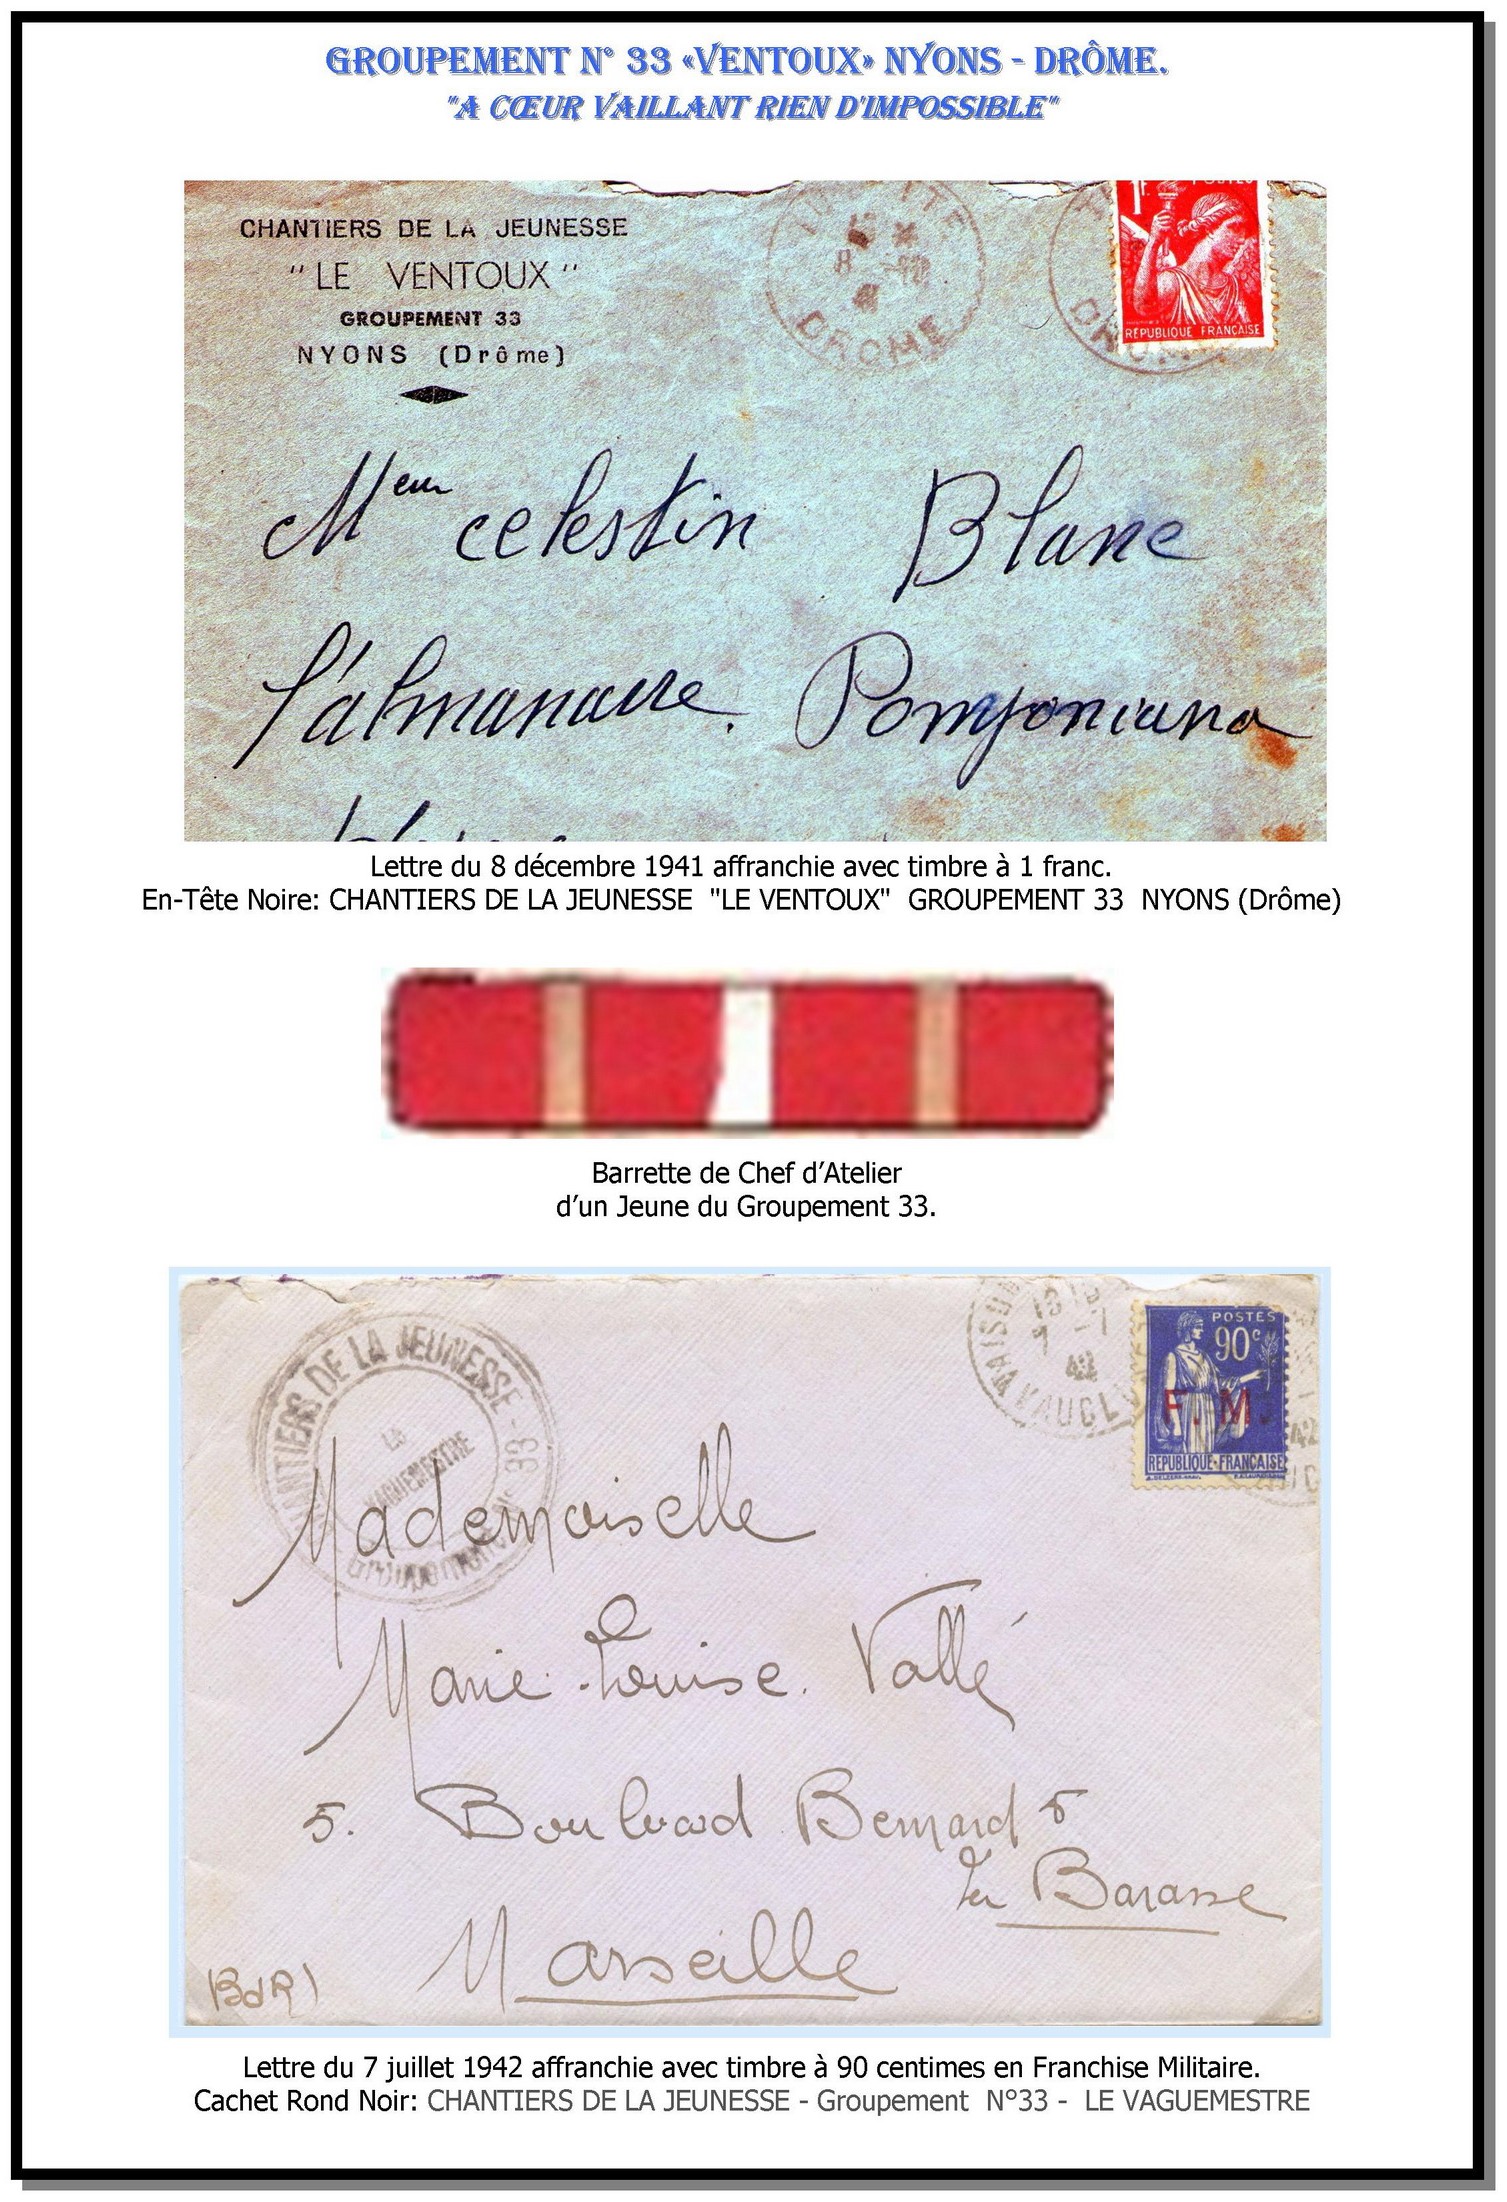 GROUPEMENT N° 33 «VENTOUX» NYONS - DRÔME.
"A CŒUR VAILLANT RIEN D'IMPOSSIBLE"
CHANTIERS DE LA JEUNESSE
"LE VENTOUX"
GROUPEMENT 33
NYONS (Drôme)
8 -12
41
DROME
1F. POSTES
REPUBLIQUE FRANÇAISE
DROME
Meur celestin Blanc
l'almanarre. Pomponiana
Lettre du 8 décembre 1941 affranchie avec timbre à 1 franc.
En-Tête Noire: CHANTIERS DE LA JEUNESSE "LE VENTOUX" GROUPEMENT 33 NYONS (Drôme)
Barrette de Chef d’Atelier
d’un Jeune du Groupement 33.
CHANTIERS DE LA JEUNESSE - Groupement N° 33 -
LE VAGUEMESTRE
VAISON
7 -7
42
VAUCLUSE
POSTES
90c
F. M.
REPUBLIQUE-FRANÇAISE
Mademoiselle
Marie-Louise. Vallé
5. Boulevard Bernard 5
La Barasse
Marseille
(BdR)
Lettre du 7 juillet 1942 affranchie avec timbre à 90 centimes en Franchise Militaire.
Cachet Rond Noir: CHANTIERS DE LA JEUNESSE - Groupement N°33 - LE VAGUEMESTRE